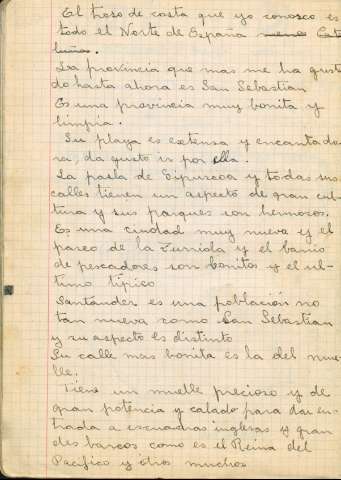 El troso de costa que yo conosco es
todo el Norte de España menos Cat
luña.
La provincia que mas me ha gusta
do hasta ahora es San Sebastian
Es una provincia muy bonita y
limpia.
Su playa es extensa y encantado
ra, da gusto ir por ella.
La pasla de Gipuzcoa y todas sus
calles tienen un aspecto de gran cul
tura y sus parques son hermosos.
Es una ciudad muy nueva y el
paseo de la Zurriola y el barrio
de pescadores son bonitos y el ul-
timo típico
Santander es una población no
tan nueva como San Sebastian
y su aspecto es distinto
Su calle mas bonita es la del mue
lle.
Tiene un muelle precioso y de
gran potencia y calado para dar en
trada a escuadras inglesas y gran
des barcos como es el Reina del
Pacifico y otros muchos